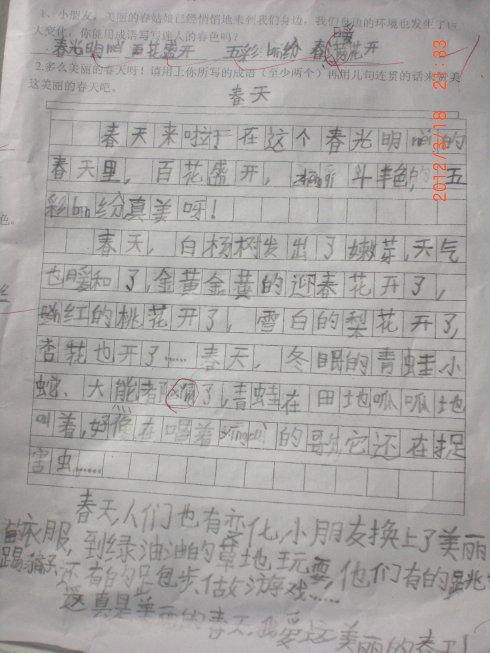 1、小朋友，美丽的春姑娘已经悄悄地来到我们身边，我们身边的环境也发生了
人变化，你能用成语写写迷人的春色吗？
春光明mei 百花盛开 五彩bin纷 春暖花开
2.多么美丽的春天呀！请用上你所写的成语（至少两个）再用几句连贯的话来赞美
这美丽的春天吧。
春天
春天来啦于在这个春光明mei的
春天里，百花盛开，斗丰色的五
彩bin纷真美呀！
春天，白杨树发出了嫩芽，天气
也暖和了，金黄金黄的迎春花开了，
粉红的桃花开了，雪白的梨花开了，
杏花也开了……春天，冬眠的青蛙、小
蛇、大能都了，青蛙在田地呱呱地
叫着，好像在唱着的歌，它还在捉
害虫……
春天，人们也有变化，小朋友换上了美丽
的衣服，到绿油油的草地玩耍，他们有的跳
踢毽子，还有的足包步、做游戏……
这真是美丽的春天，我爱这美丽的春天！
2012/3/18 21:33